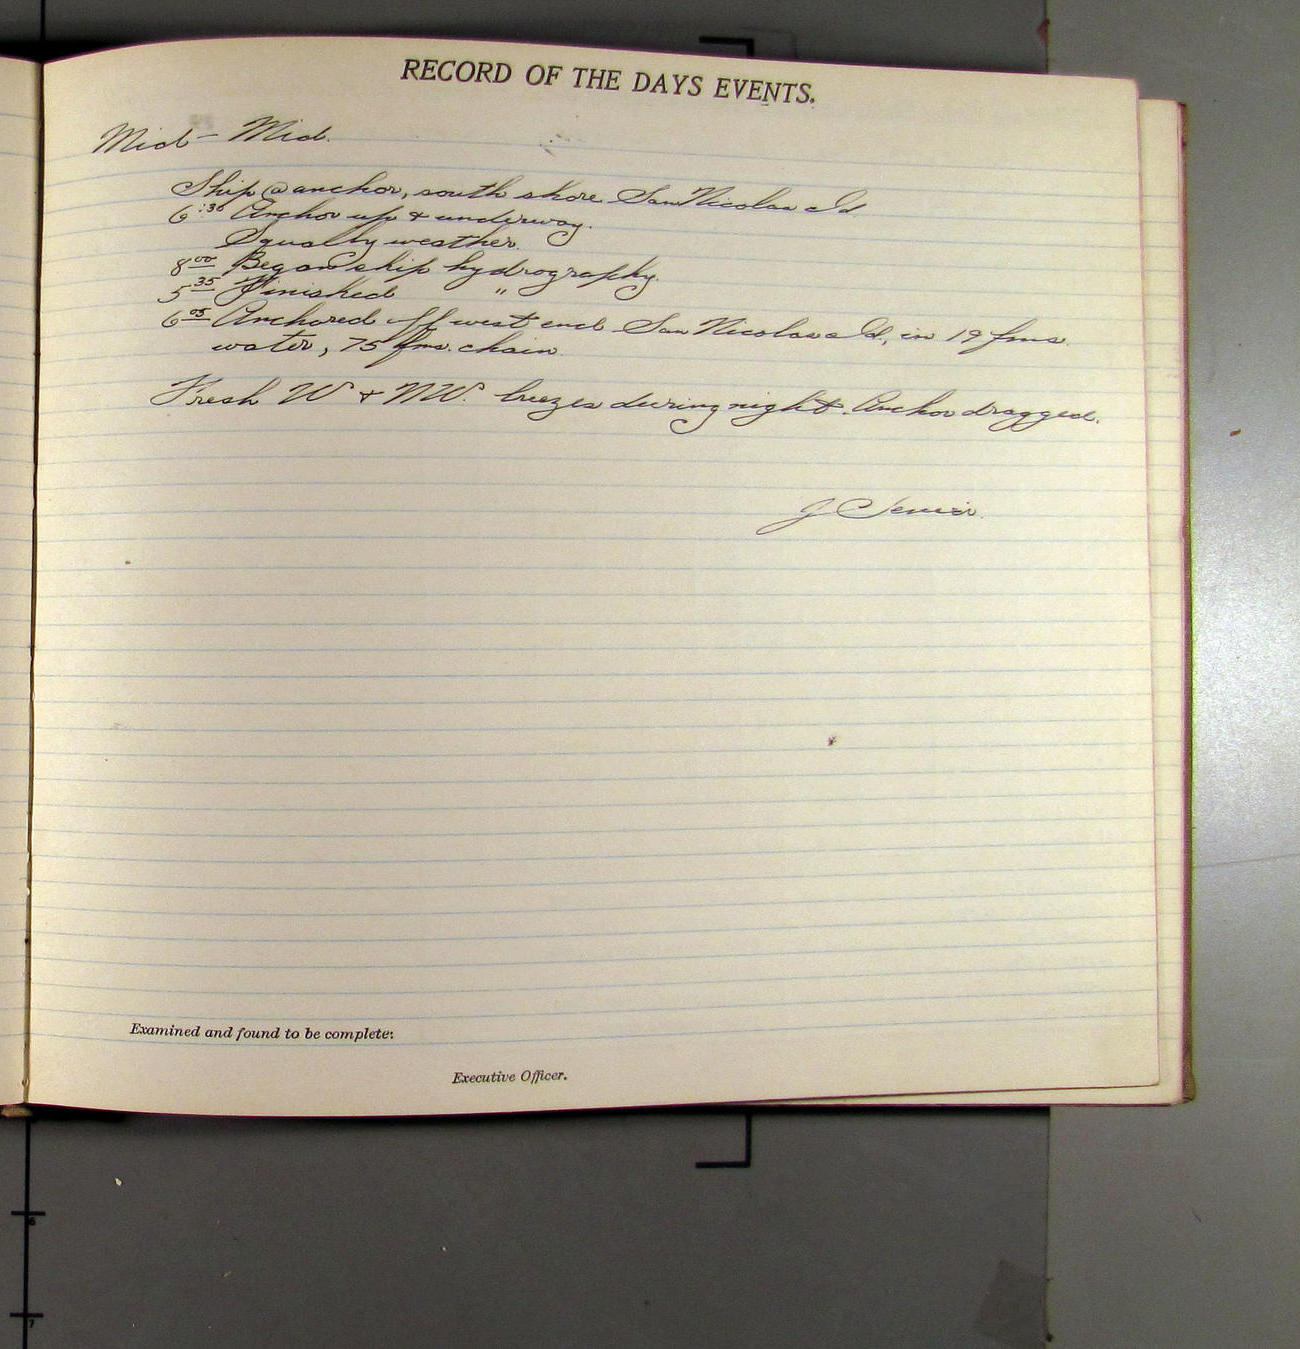 RECORD OF THE DAYS EVENTS.
Mid - Mid.
Ship @ anchor, south shore San Nicolas Id
6:30 Anchor up & underway.
Squally weather.
8 00 Began ship hydrography.
5 35 Finished "
6 05 Anchored off west end San Nicolas Id, in 19 fms
water, 75 fms. chain.
Fresh W & NW. breezes during night. Anchor dragged.
J
Examined and found to be complete:
Executive Officer.
6
7